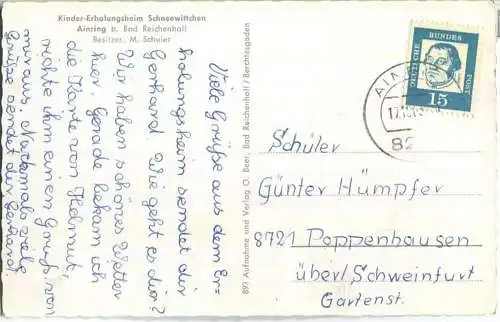 Kinder-Erholungsheim Schneewittchen
Ainring b. Bad Reichenhall
Besitzer: M. Schuier
Viele Grüße aus dem Er-
holungsheim sendet dir
Gerhard. Wie geht es dir?
Wir haben schönes Wetter
hier. Gerade bekam ich
die Karte von Helmut,
richte ihm einen Gruß von
mir aus. Nochmals viele
Grüße sendet dir Gerhard.
893 Aufnahme und Verlag O. Beer, Bad Reichenhall / Berchtesgaden
DEUTSCHE BUNDESPOST
15
AIN
17.10
82
Schüler
Günter Hümpfer
8721 Poppenhausen
über/Schweinfurt
Gartenst.